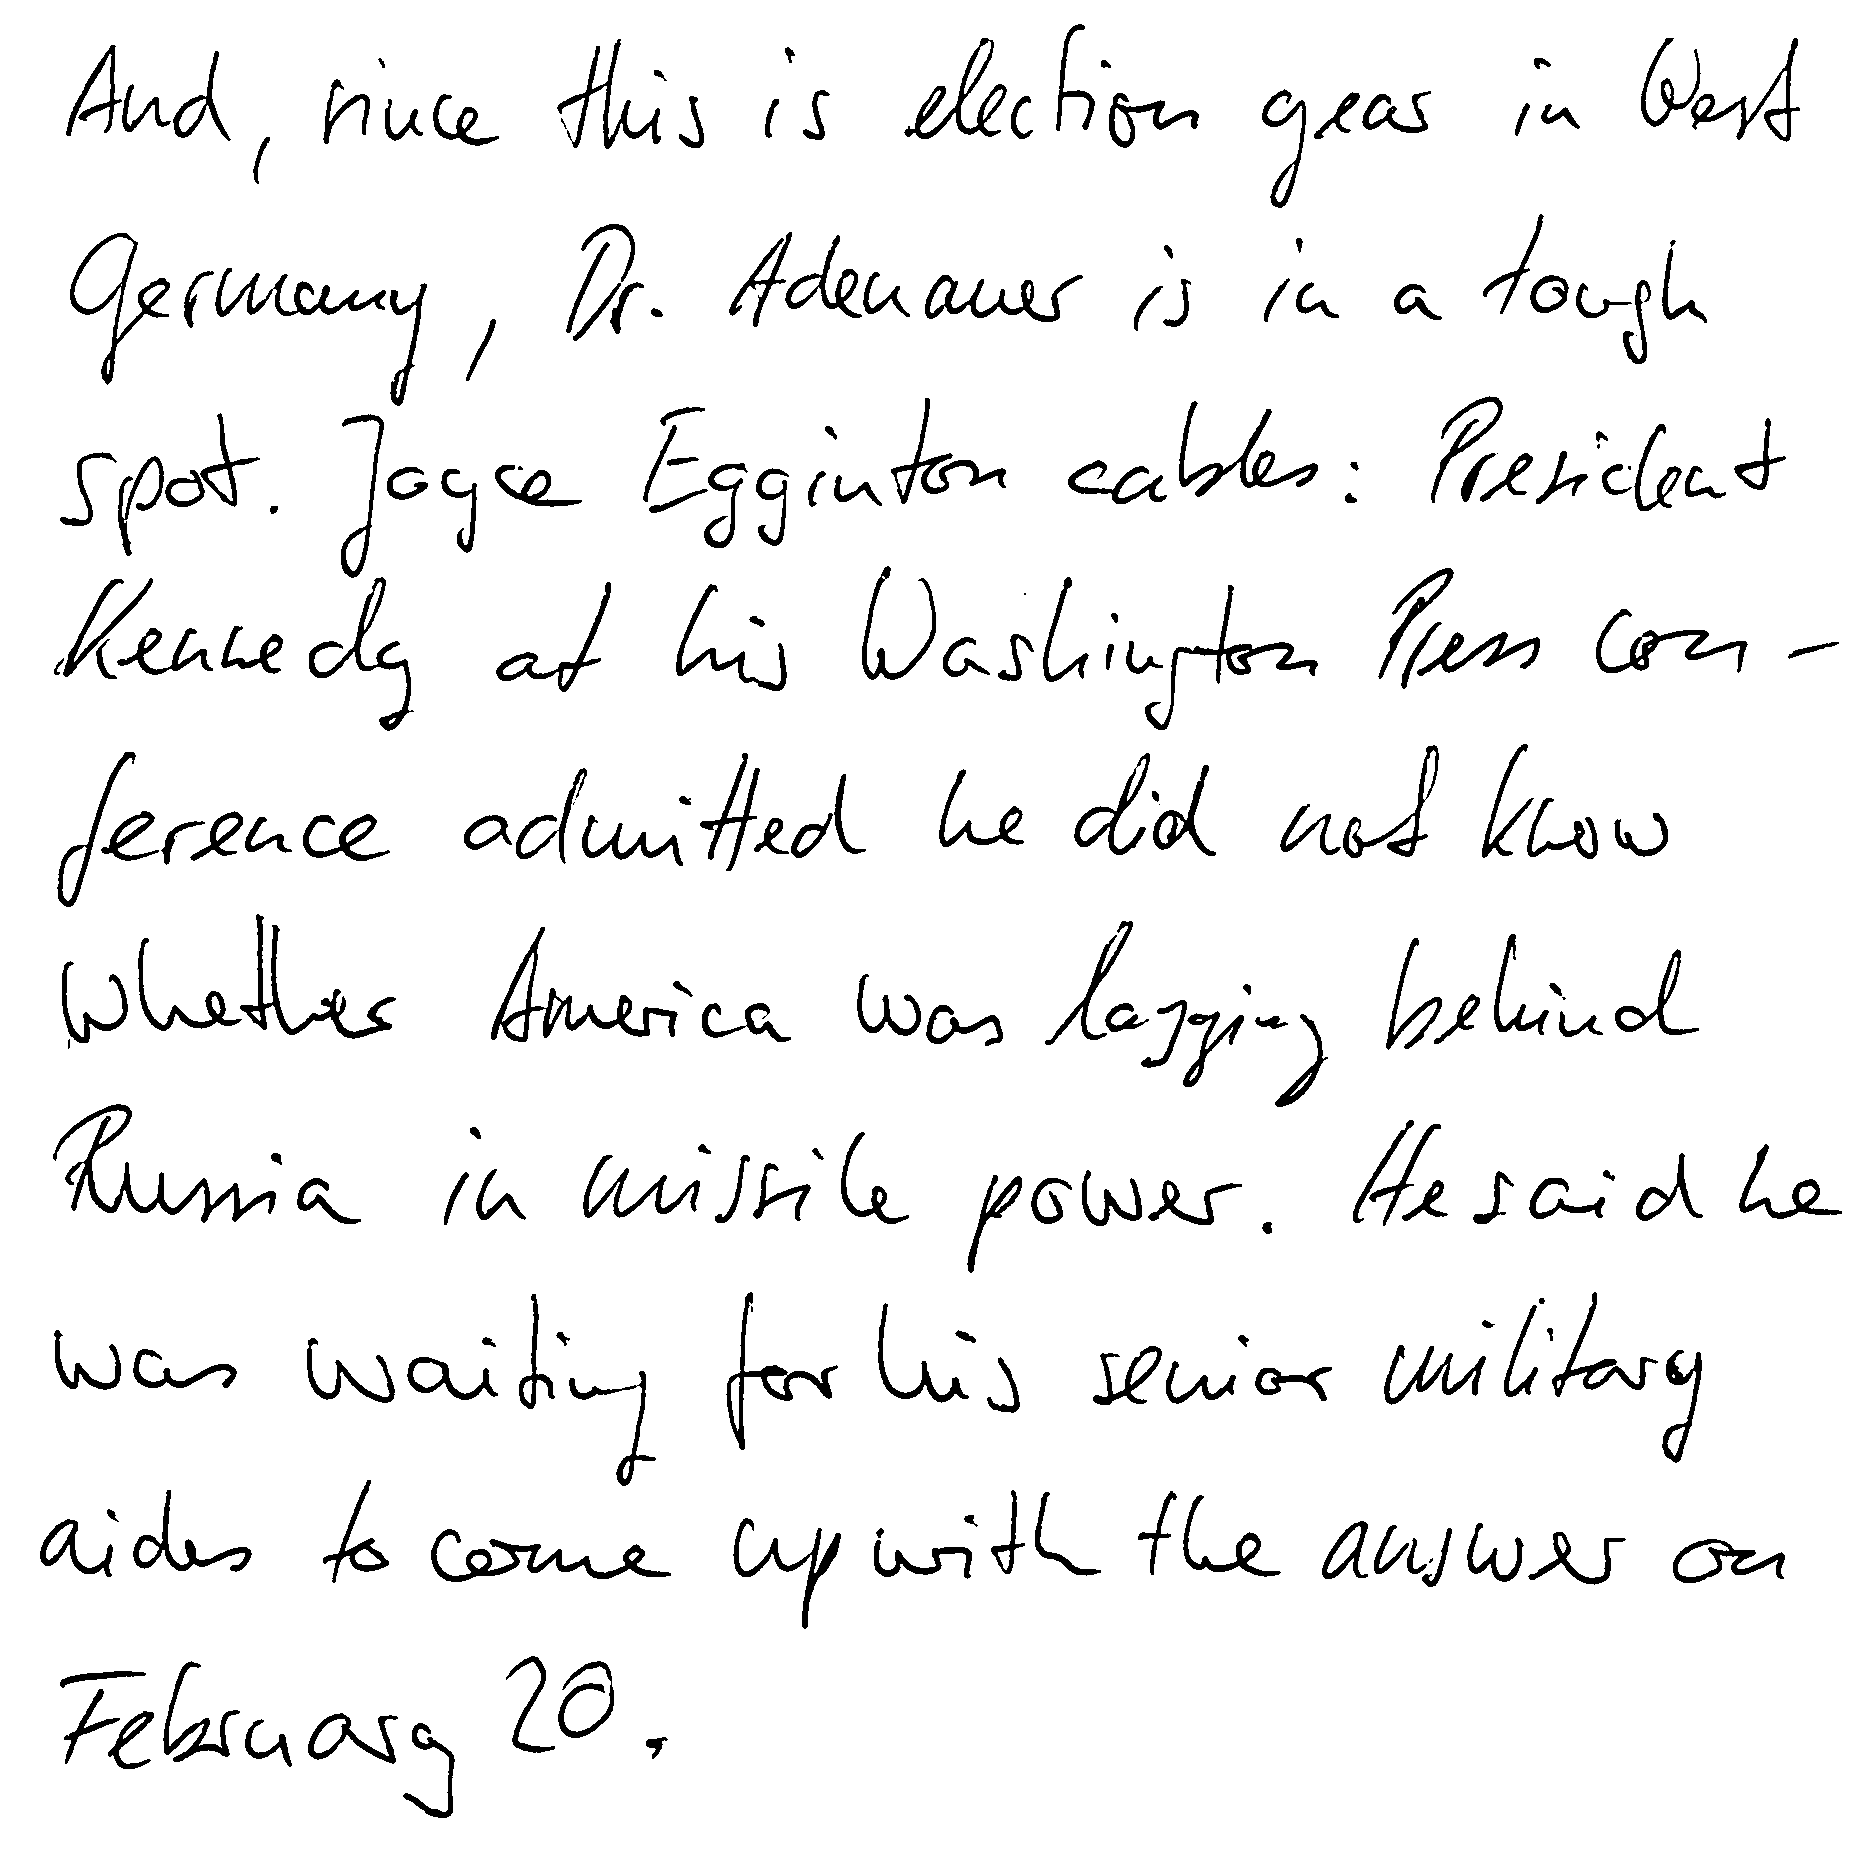 And, since this is election year in West
Germany, Dr. Adenauer is in a tough
spot. Joyce Egginton cables: President
Kennedy at his Washington Press con-
ference admitted he did not know
whether America was lagging behind
Russia in missile power. He said he
was waiting for his senior military
aides to come up with the answer on
February 20.